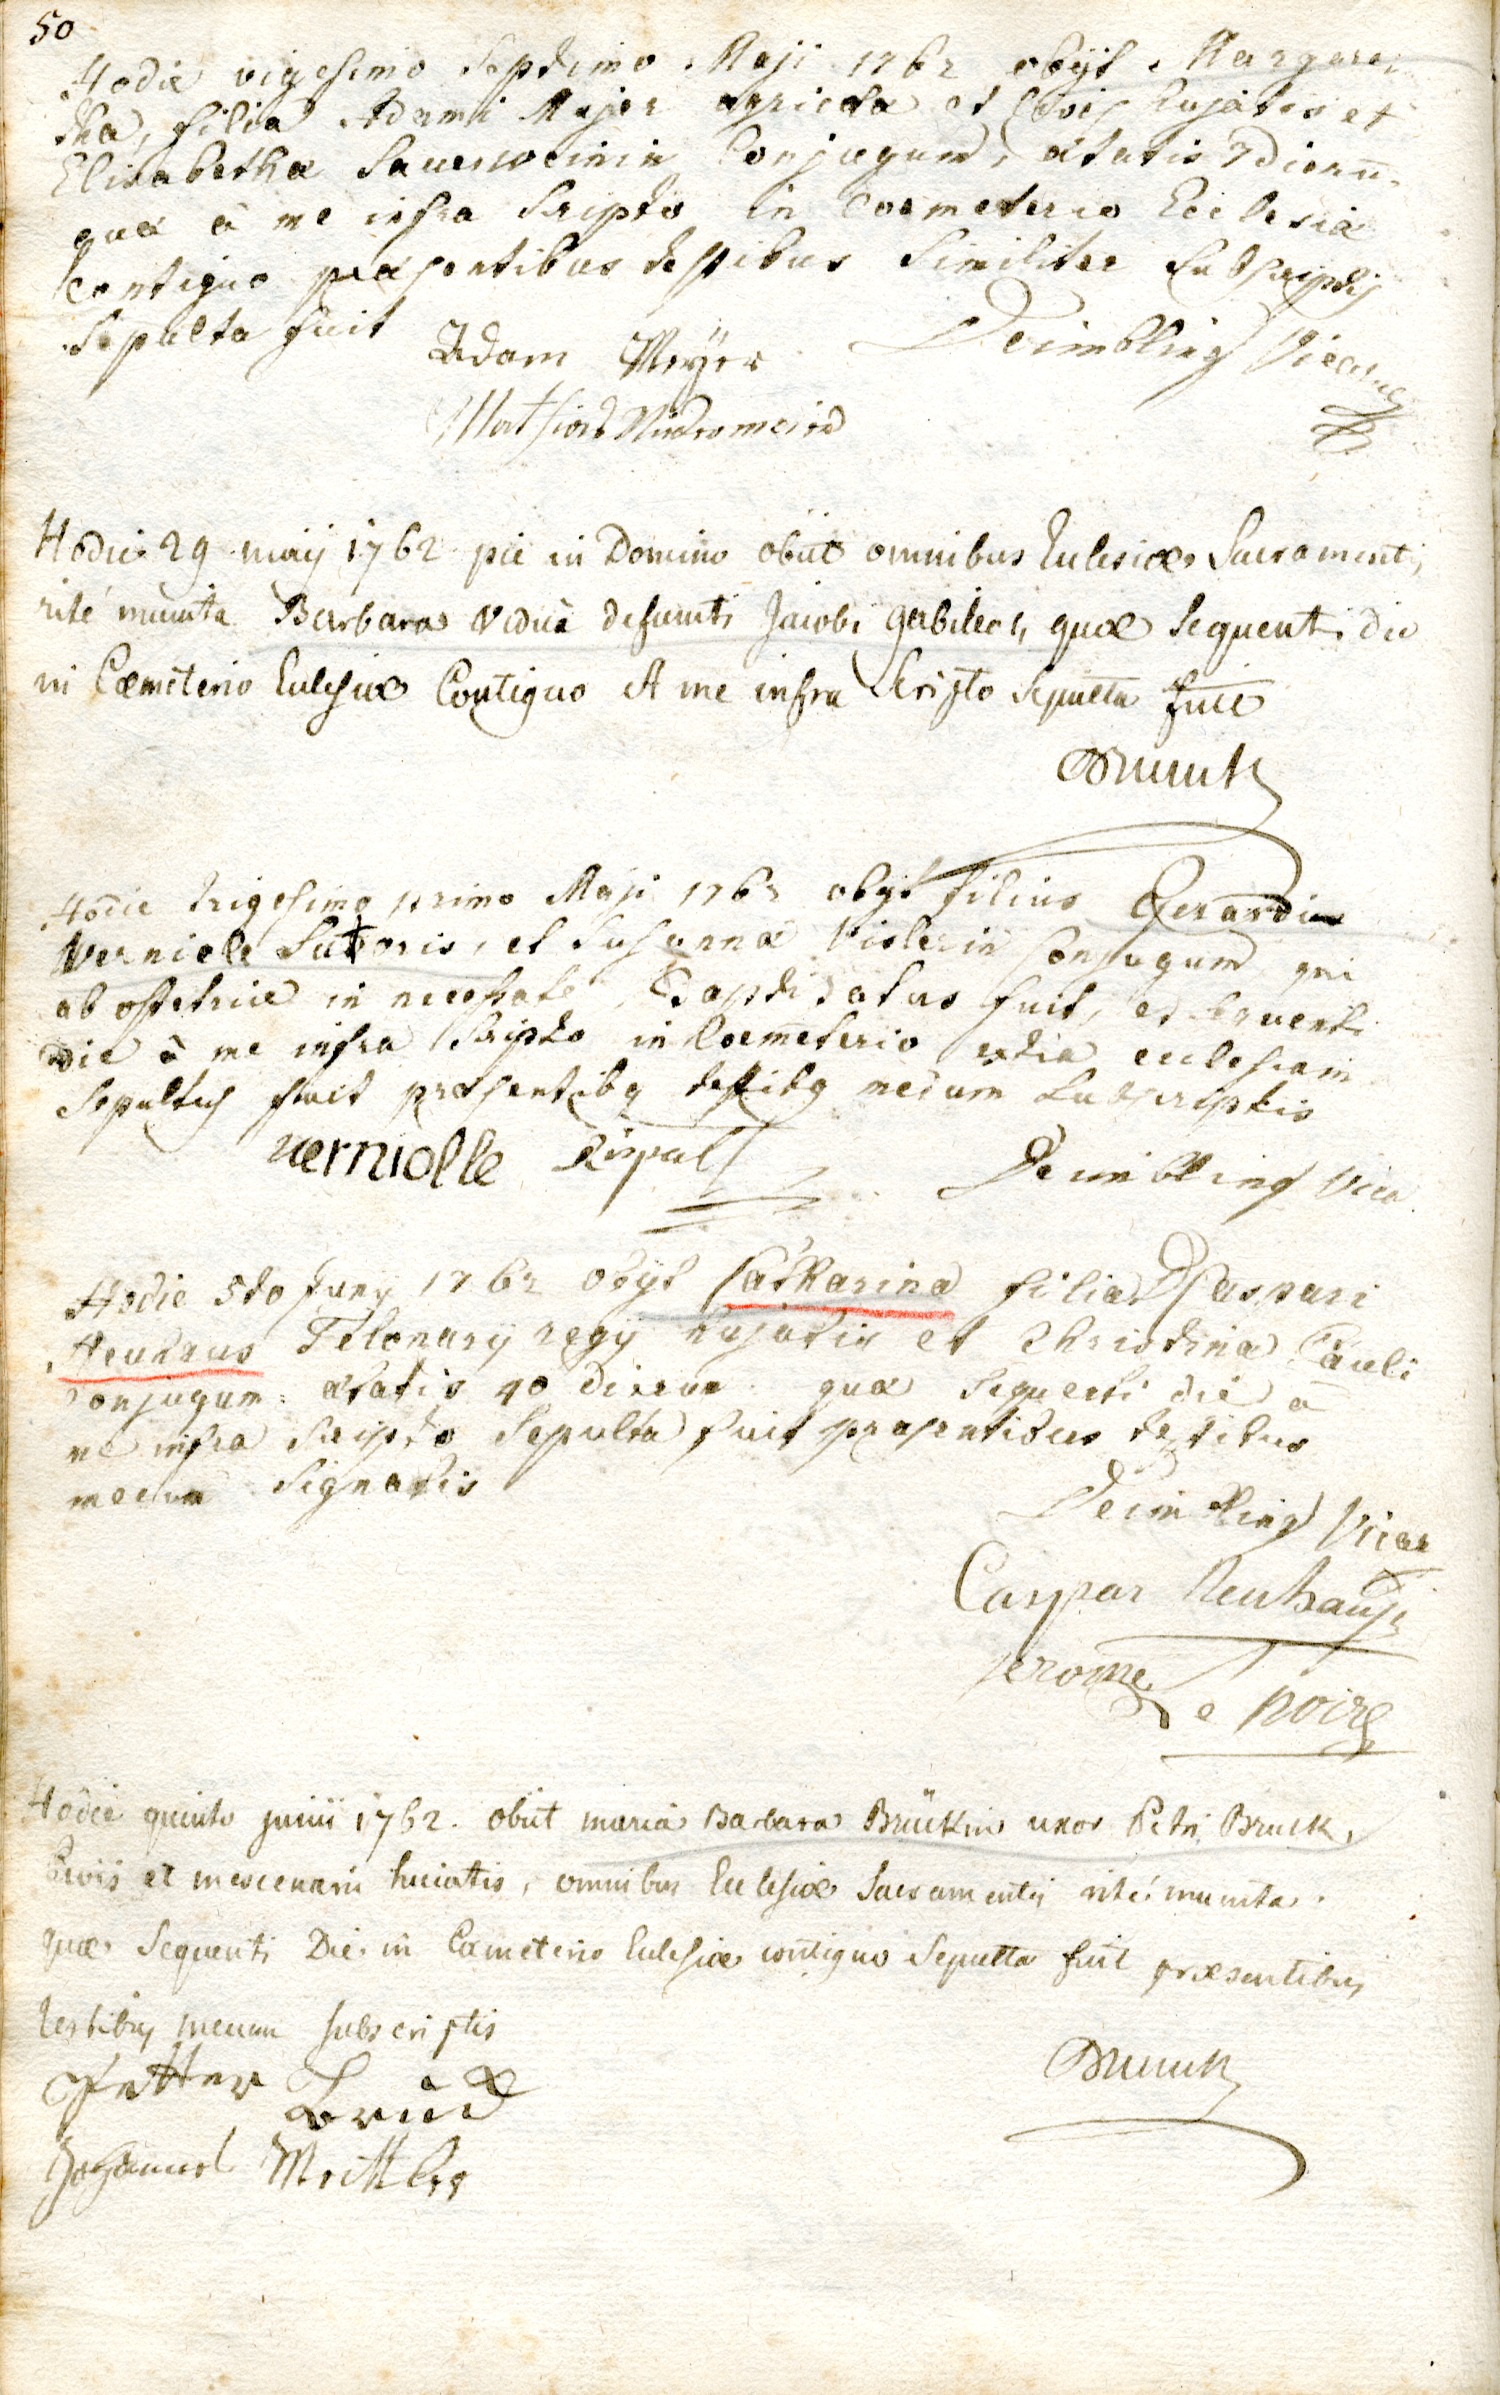 50
Hodie vigesimo septimo Maji 1762 obijt Margare-
tha, filia Adami Majer agricola et Civis hujatis et
Elisabetha Sauerweinin Conjugum, ætatis 7 dierum.
quæ à me infra scripto in Coemeterio Ecclesiæ
Contiguo præsentibus testibus similiter subscriptis
sepulta fuit
Deimbling Vicarius
Adam Meÿer
Mathias
Hodie 29 maij 1762 pie in Domino obiit omnibus Eclesiæ Sacramentis
rité munita Barbara Vidua defuncti Jacobi quæ Sequenti die
in Cœmeterio Eclesiæ Contiguo A me infra Scripto Sepulta fuit
Hodie trigesimo primo Maji 1762 obijt filius Gerardi
Verniole Sutoris, et Susanna Vislerin Conjugum qui
ab ostetrice in necessate Baptizatus fuit, et sequenti
die à me infra scripto in Coemeterio extra ecclesiam
sepultus fuit præsentibq testibq mecum subscriptis
verniolle Rispal
Deimbling Vica
Hodie 5to Juny 1762 obijt Catharina filia Caspari
Neuhaus Telonarij regij hujatis et Christina Pauli
conjugum ætatis 40 dierum quæ sequenti die à
me infra scripto sepulta fuit præsentibus testibus
mecum signatis
Deimbling Vicar
Caspar Neuhaus
jerome
Le noire
Hodie quinto junii 1762. obiit maria Barbara Brückin uxor Petri Bruck,
Civis et mercenarii huiatis, omnibus Ecclesiæ Sacramentis rité munita.
quæ Sequenti Die in Cœmeterio Eclesiæ contiguo Sepulta fuit præsentibus
testibus mecum subscriptis
Petter Brück
Johannes